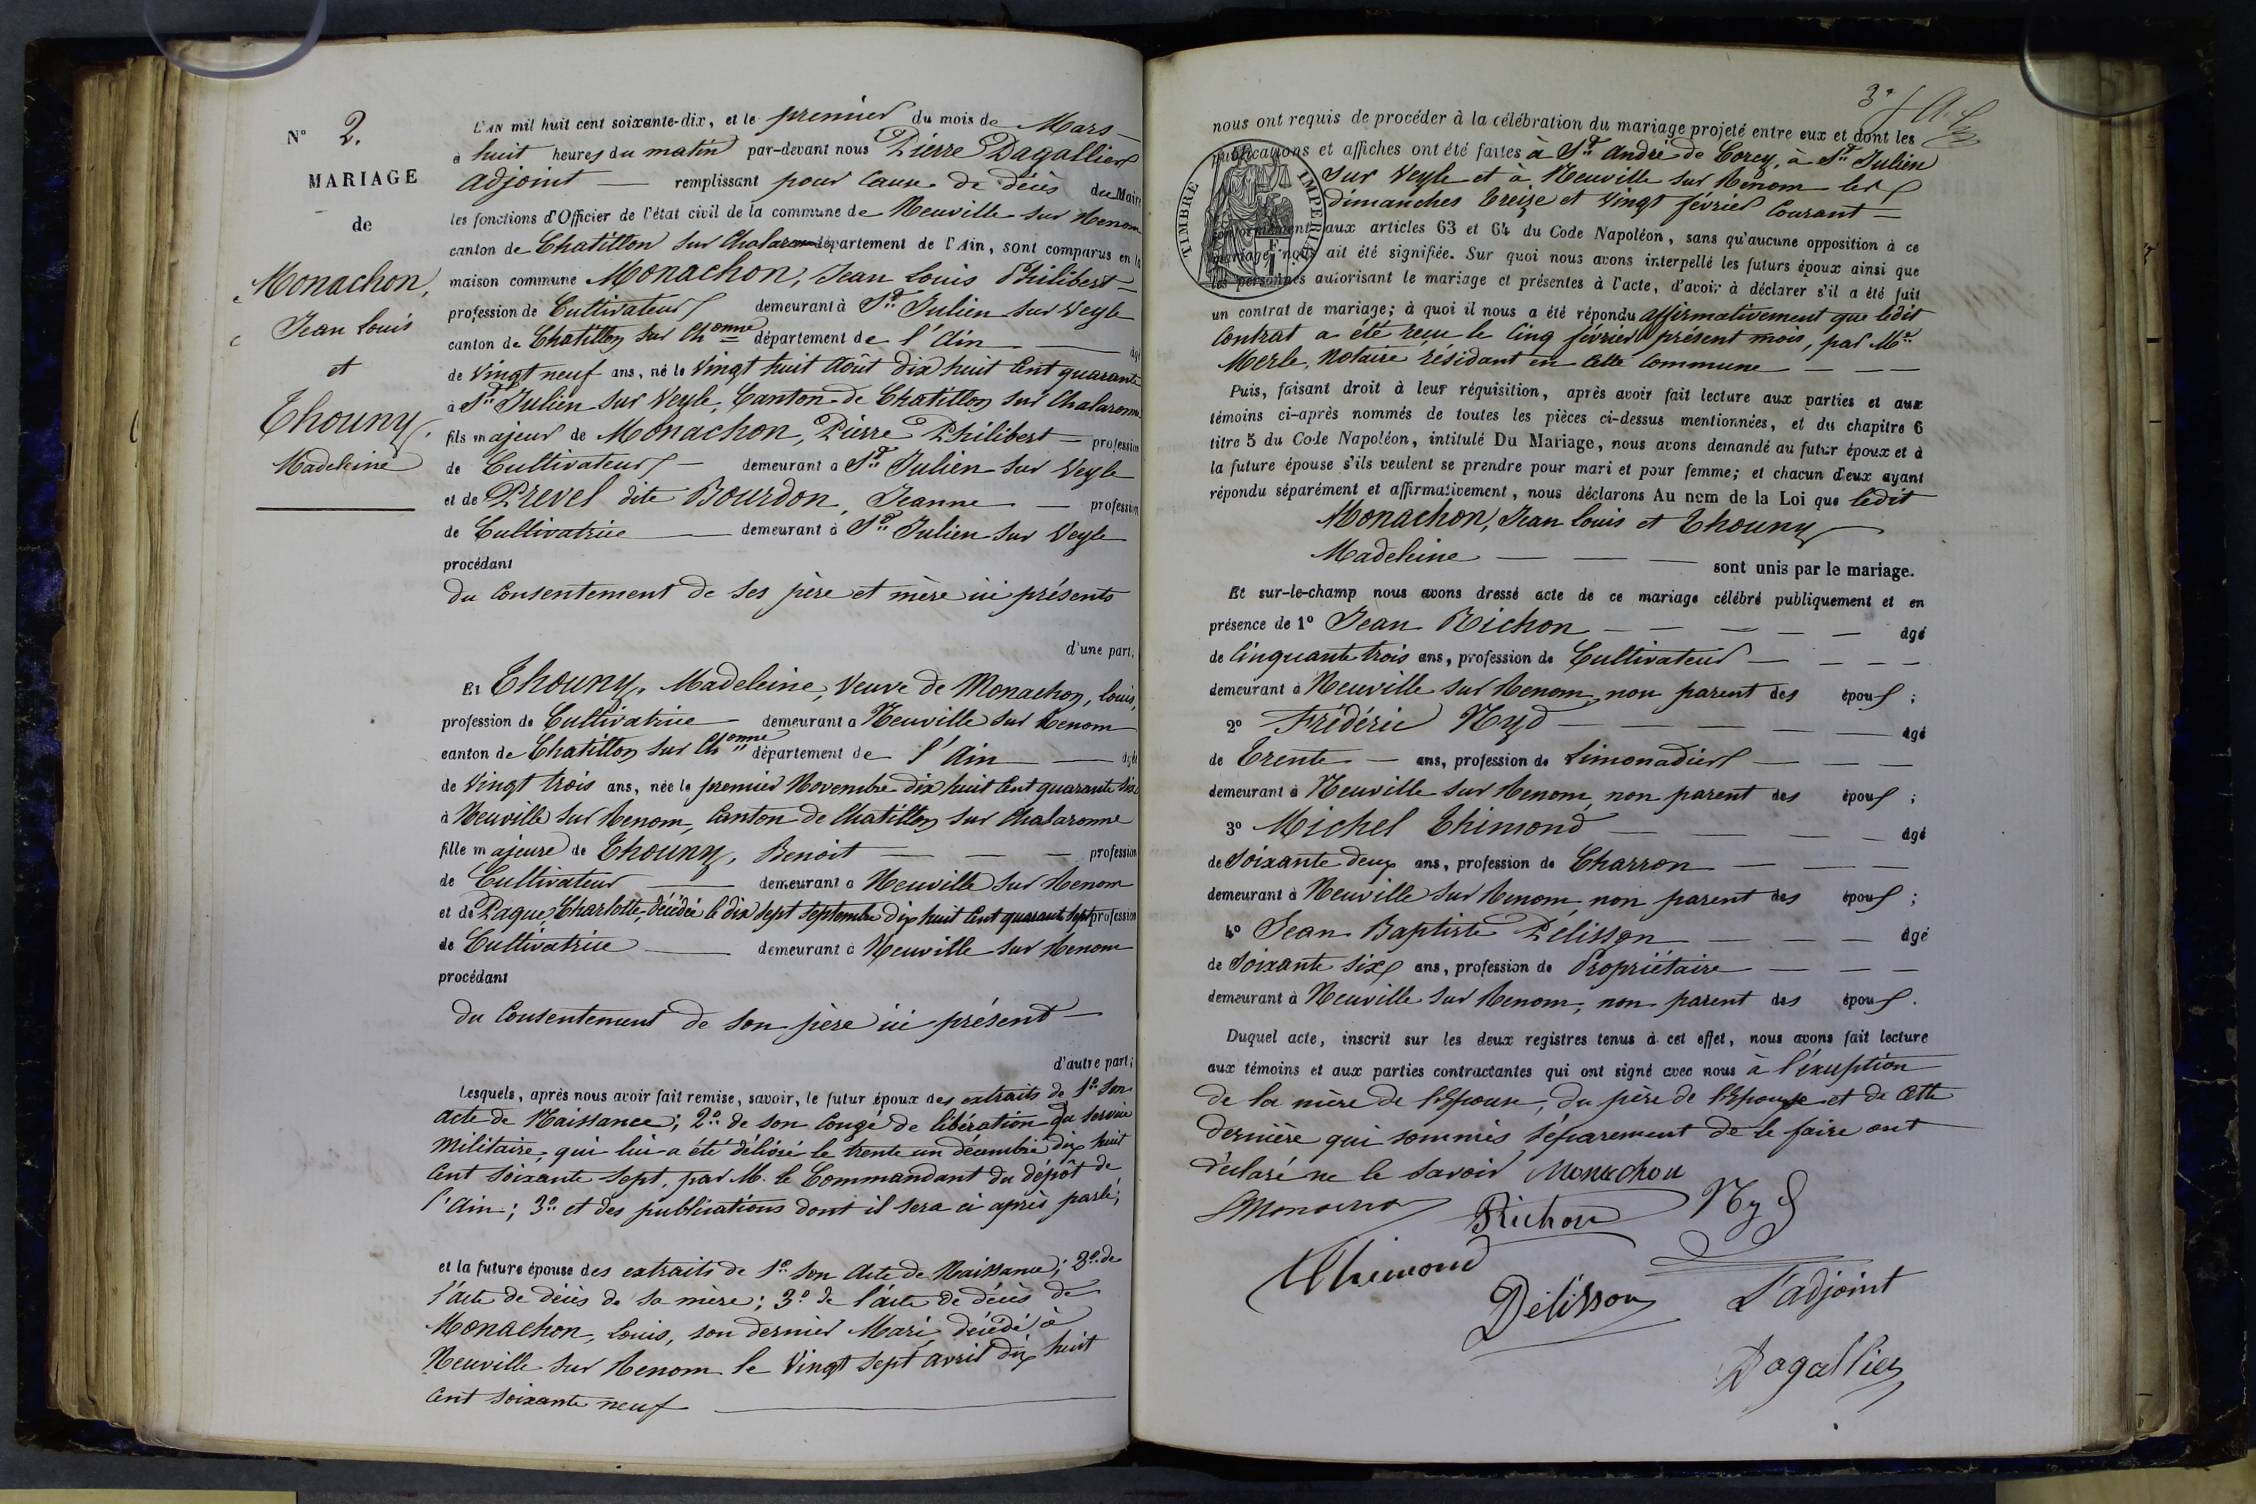 N° 2.
MARIAGE
de
Monachon,
Jean Louis
et
Thouny,
Madeleine
L'AN mil huit cent soixante-dix, et le premier du mois de Mars
à huit heures du matin par-devant nous Pierre Dagallier
adjoint — remplissant pour cause de décès du Maire
les fonctions d'Officier de l'état civil de la commune de Neuville sur Renom
canton de Chatillon sur Chalaronne département de l'Ain, sont comparus en la
maison commune Monachon, Jean Louis Philibert
profession de Cultivateur demeurant à St Julien sur Veyle
canton de Chatillon sur Chonne département de l'Ain — âgé
de Vingt neuf ans, né le Vingt huit Août dix huit Cent quarante
à St Julien sur Veyle, Canton de Chatillon sur Chalaronne
fils majeur de Monachon, Pierre Philibert — profession
de Cultivateur — demeurant à St Julien sur Veyle
et de Prevel dite Bourdon, Jeanne — profession
de Cultivatrice — demeurant à St Julien sur Veyle
procédant
du Consentement de ses père et mère ici présents
d'une part;
Et Thouny, Madeleine, Veuve de Monachon, Louis,
profession de Cultivatrice demeurant à Neuville sur Renom
canton de Chatillon sur Chonne département de l'Ain — âgée
de Vingt trois ans, née le premier Novembre dix huit Cent quarante six
à Neuville sur Renom, Canton de Chatillon sur Chalaronne
fille majeure de Thouny, Benoit — — — profession
de Cultivateur — demeurant à Neuville sur Renom
et de Paque Charlotte, décédée le dix sept septembre dix huit Cent quarante sept profession
de Cultivatrice — demeurant à Neuville sur Renom
procédant
du Consentement de son père ici présent —
d'autre part;
Lesquels, après nous avoir fait remise, savoir, le futur époux des extraits de 1° Son
acte de Naissance; 2° de son Congé de libération du service
Militaire, qui lui a été délivré le trente un décembre dix huit
Cent soixante sept, par M. le Commandant du dépôt de
l'Ain; 3° et des publications dont il sera ci après parlé;
et la future épouse des extraits de 1° Son Acte de Naissance; 2° de
l'acte de décès de sa mère; 3° de l'acte de décès de
Monachon, Louis, son dernier Mari, décédé à
Neuville sur Renom le Vingt sept avril dix huit
Cent soixante neuf —
3e
nous ont requis de procéder à la célébration du mariage projeté entre eux et dont les
publications et affiches ont été faites à St André de Corcy, à St Julien
sur Veyle et à Neuville sur Renom les
dimanches treize et Vingt février Courant —
TIMBRE IMPERIAL
conformément aux articles 63 et 64 du Code Napoléon, sans qu'aucune opposition à ce
mariage nous ait été signifiée. Sur quoi nous avons interpellé les futurs époux ainsi que
les personnes autorisant le mariage et présentes à l'acte, d'avoir à déclarer s'il a été fait
un contrat de mariage; à quoi il nous a été répondu affirmativement que ledit
Contrat a été reçu le Cinq février présent mois, par Me
Merle, Notaire résidant en Cette Commune — — —
Puis, faisant droit à leur réquisition, après avoir fait lecture aux parties et aux
témoins ci-après nommés de toutes les pièces ci-dessus mentionnées, et du chapitre 6
titre 5 du Code Napoléon, intitulé Du Mariage, nous avons demandé au futur époux et à
la future épouse s'ils veulent se prendre pour mari et pour femme; et chacun d'eux ayant
répondu séparément et affirmativement, nous déclarons Au nom de la Loi que ledit
Monachon, Jean Louis et Thouny
Madeleine — — — sont unis par le mariage.
Et sur-le-champ nous avons dressé acte de ce mariage célébré publiquement et en
présence de 1° Jean Richon — — — — — âgé
de Cinquante trois ans, profession de Cultivateur — — — —
demeurant à Neuville sur Renom, non parent des époux;
2° Frédéric Nyd — — — — — âgé
de Trente — ans, profession de Limonadier — — —
demeurant à Neuville sur Renom, non parent des époux;
3° Michel Thimond — — — — âgé
de Soixante deux ans, profession de Charron — — —
demeurant à Neuville sur Renom, non parent des époux;
4° Jean Baptiste Pélisson — — — — âgé
de Soixante six ans, profession de Propriétaire — — —
demeurant à Neuville sur Renom, non parent des époux.
Duquel acte, inscrit sur les deux registres tenus à cet effet, nous avons fait lecture
aux témoins et aux parties contractantes qui ont signé avec nous à l'éxception
de la mère de l'Epoux, du père de l'Epouse et de Cette
dernière qui sommés séparement de le faire ont
déclaré ne le savoir Monachon
Richon Nyd
Thimond
Pélisson L'adjoint
Dagallier